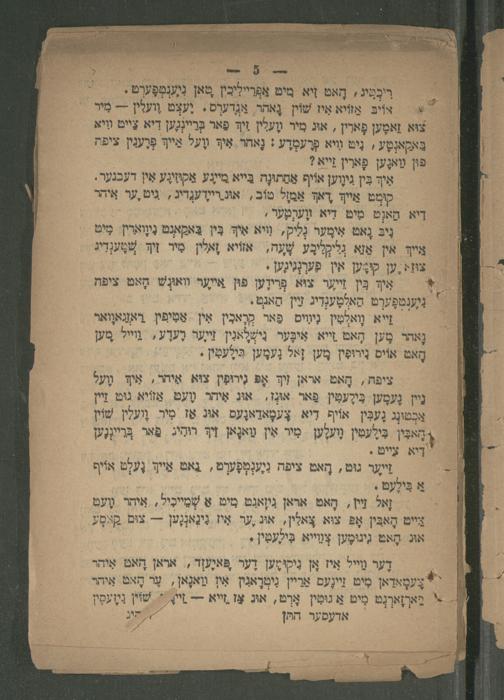 — 5 —
ריכטיג, האט זיא מיט א פריילי׳כין טאן גיענטפערט.
אויב אזויא איז שוין גאהר אנדערס. יעצט וועלין — מיר
צוא זאמען פארין, אונ מיר וועלין זיך פאר ברייינגען דיא צייט וויא
באקאנטע, ניט וויא פרעמדע: נאהר איך וועל אייך פרעגין ציפה
פון וואנען פארין זייא?
איך בין גיווען אויף אחתונה בייא מיינע אקוזינע אין
קומט אייך דאך אמזל טוב, אונ ריידענדיג, גיט ער איהר
דיא האנט מיט דיא ווערטער,
גיב גאט אימער גליק, וויא איך בין באקאנט געווארין מיט
אייך אין אזא גליקליכע שעה, אזויא זאלין מיר זיך שטענדיג
קומען אין פערגניגען.
איך בין זייער צוא פרידען פון אייער וואונש האט ציפה
גיענטפערט האלטענדיג זיין האנט.
זייא וואלטין גיוויס פאר קראכין אין אטיפין ראזגאוואר
נאהר מען האט זייא איבער גישלאגין זייער רעדע, ווייל מען
האט אויס גירופין מען זאל נעמען בילעטין.
ציפה, האט אראן זיך אפ גירופין צוא איהר, איך וועל
גיין נעמען בילעטין פאר אונז, אונ איהר וועט אזויא גוט זיין
אכטונג געבין אויף דיא צעמאדאנעס אונ אז מיר וועלין שוין
האבין בילעטין וועלען מיר אין וואגאן זיך רוהיג פאר ברייינגען
דיא צייט.
זייער גוט, האט ציפה גיענטפערט, נאט אייך געלט אויף
א בילעט.
זאל זיין, האט אראן גיזאגט מיט א שמייכיל, איהר וועט
צייט האבין אפ צוא צאלין, אונ ער איז גיגאנגען — צום קאסע
אונ האט גינומען צווייא בילעטין.
דער ווייל איז אן גיקומען דער פאיעזד, אראן האט איהר
צעמאדאן מיט זיינעם אריין גיטראגין אין וואגאן, ער האט איהר
פארזארגט מיט א גוטין ארט, אונ אז זייא — שוין געזעסין